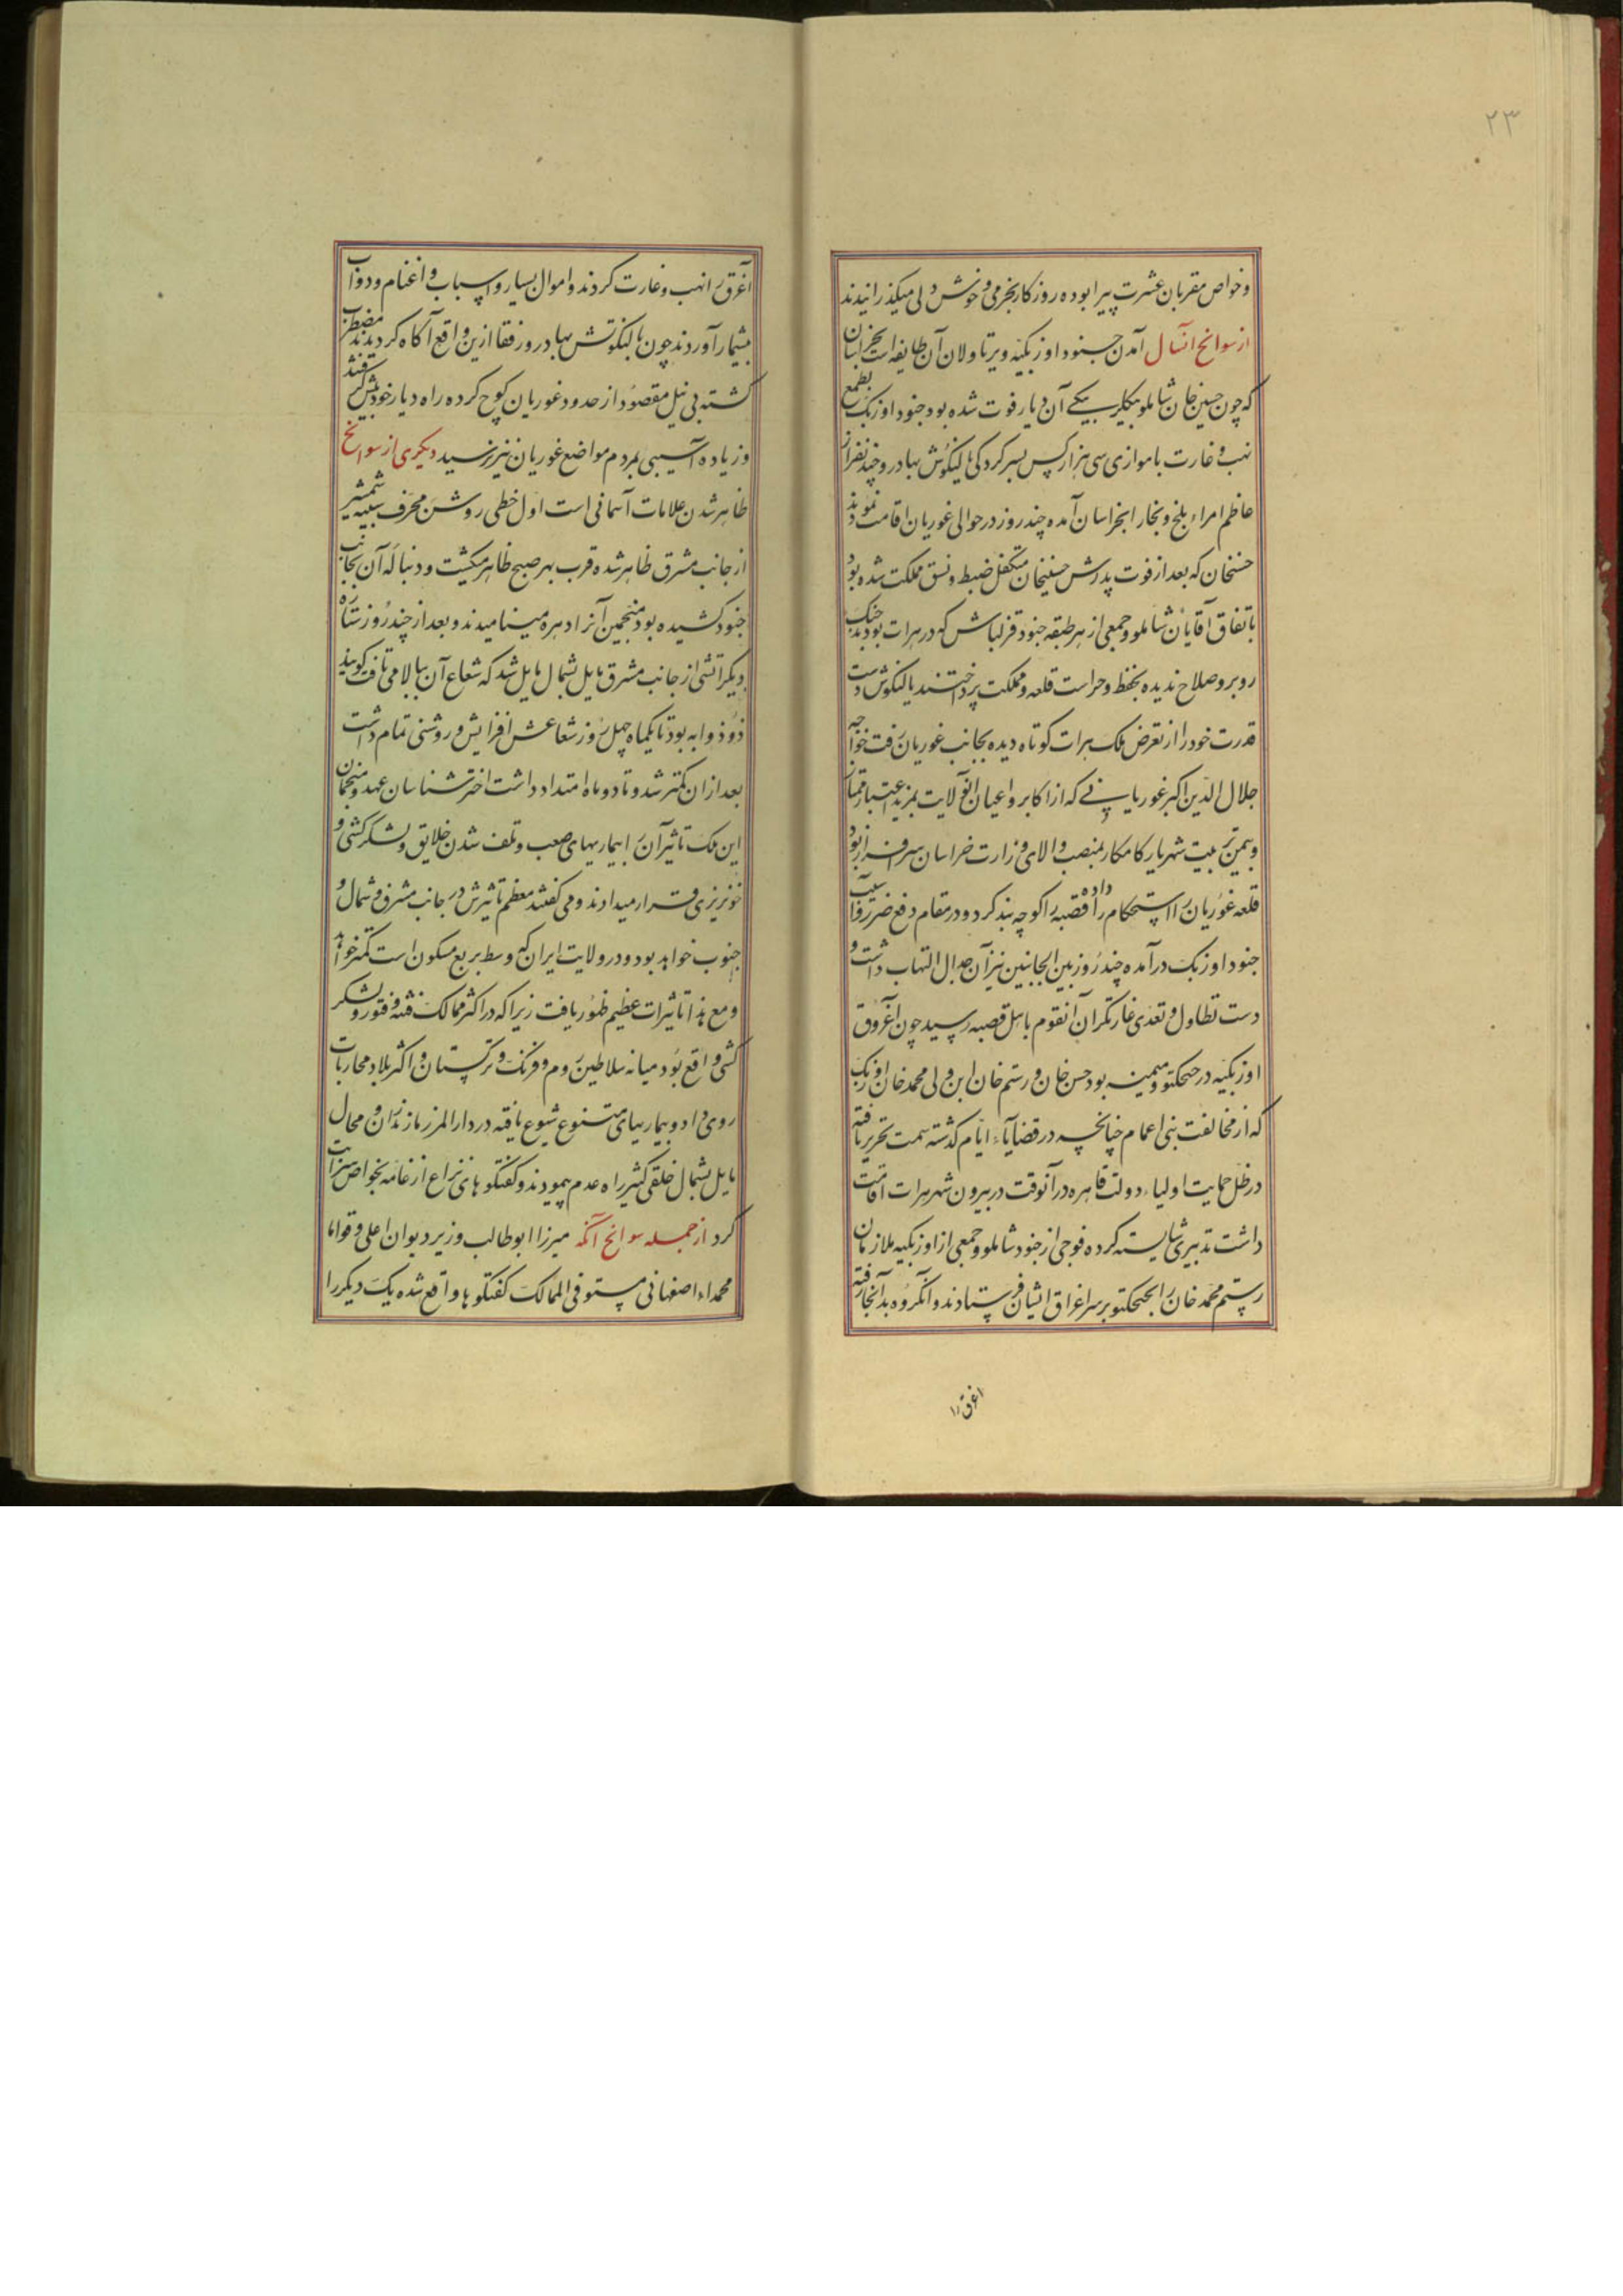 ۲۳
وخواص مقربان عشرت پیرا بوده روزکار بخرمی و خوش دلی میکذرانیدند
از سوانح انسال آمدن جنود اوزبکیه و یرتاولان آن طایفه است بخراسان
که چون حسین خان شاملو بیکلربیکے آن دیار فوت شده بود جنود اوزبک بطمع
نهب و غارت با موازی سی هزار کس بسرکردکی یالنکوش بهادر و چند نفر از
عاظم امراء بلخ و بخارا بخراسان آمده چند روز در حوالی غوریان اقامت نمودند
حسنخان که بعد از فوت پدرش حسینخان متکفل ضبط و نسق مملکت شده بود
باتفاق آقایان شاملو و جمعی از هر طبقه جنود قزلباش که در هرات بودند جنک
روبرو صلاح ندیده بحفظ و حراست قلعه و مملکت پرداختند یالنکوش دست
قدرت خود را از تعرض ملک هرات کوتاه دیده بجانب غوریان رفت خواجه
جلال الدین اکبر غوریانے که از اکابر و اعیان انولایت بمزید اعتبار ممتاز
و بیمن تربیت شهریار کامکار بمنصب والای وزارت خراسان سرافراز بود
قلعه غوریان را استحکام داده قصبه را کوچه بند کرد و در مقام دفع ضرر و آسیب
جنود اوزبک درآمده چند روز بین الجانبین نیزان جدال التهاب داشت و
دست تطاول و تعدی غارتکران آنقوم باهل قصبه رسید چون آغروق
اوزبکیه در چیچکتو و میمنه بود حسن خان و رستم خان ابن ولی محمد خان اوزبک
که از مخالفت بنی اعمام چنانچه در قضایاء ایام کذشته سمت تحریر یافته
در ظل حمایت اولیاء دولت قاهره در آنوقت در بیرون شهر هرات اقامت
داشت تدبیری شایسته کرده فوجی از جنود شاملو و جمعی از اوزبکیه ملازمان
رستم محمد خان را بچیچکتو بر سر اغراق ایشان فرستادند و آنکروه بدآنجا رفته
اغرق را
آغرق را نهب و غارت کردند و اموال بسیار و اسباب و اغنام و دواب
بیشمار آوردند چون یالنکوتش بهادر و رفقا ازین واقع آکاه کردیدند مضطرب
کشته بی نیل مقصود از حدود غوریان کوچ کرده راه دیار خود پیش کرفتند
و زیاده آسیبی بمردم مواضع غوریان نیز نرسید دیکری از سوانح
ظاهر شدن علامات آسمانی است اول خطی روشن محرف شبیه شمشیر
از جانب مشرق ظاهر شده قرب بهر صبح ظاهر میکشت و دنباله آن بجانب
جنود کشیده بود منجمین آنرا دهره مینامیدند و بعد از چند روز ستاره
دیکر آتشی از جانب مشرق مایل بشمال مایل شد که شعاع آن ببالا می تافت کویند
ذو ذوابه بود تا یکماه چهل روز شعاعش افزایش و روشنی تمام داشت
بعد از ان کمتر شد و تا دو ماه امتداد داشت اختر شناسان عهد و منجمان
این ملک تاثیر آن را بیماریهای صعب و تلف شدن خلایق و لشکرکشی و
خونریزی قرار میدادند و می کفتند معظم تاثیرش در جانب مشرق و شمال و
جنوب خواهد بود و در ولایت ایران که وسط بربع مسکون است کمتر خواهد
و مع هذا تاثیرات عظیم ظهور یافت زیرا که در اکثر ممالک فتنه و فتور و لشکر
کشی واقع بود میانه سلاطین روم و فرنک و ترکستان و اکثر بلاد محاربات
روی داد و بیماریهای متنوع شیوع یافته در دار المرز مازندران و محال
مایل بشمال خلقی کثیر راه عدم پیمودند و کفتکوهای نزاع از عامه بخواص سرایت
کرد از جمله سوانح آنکه میرزا ابوطالب وزیر دیوان اعلی و قواما
محمداء اصفهانی مستوفی الممالک کفتکوها واقع شده یک دیکر را